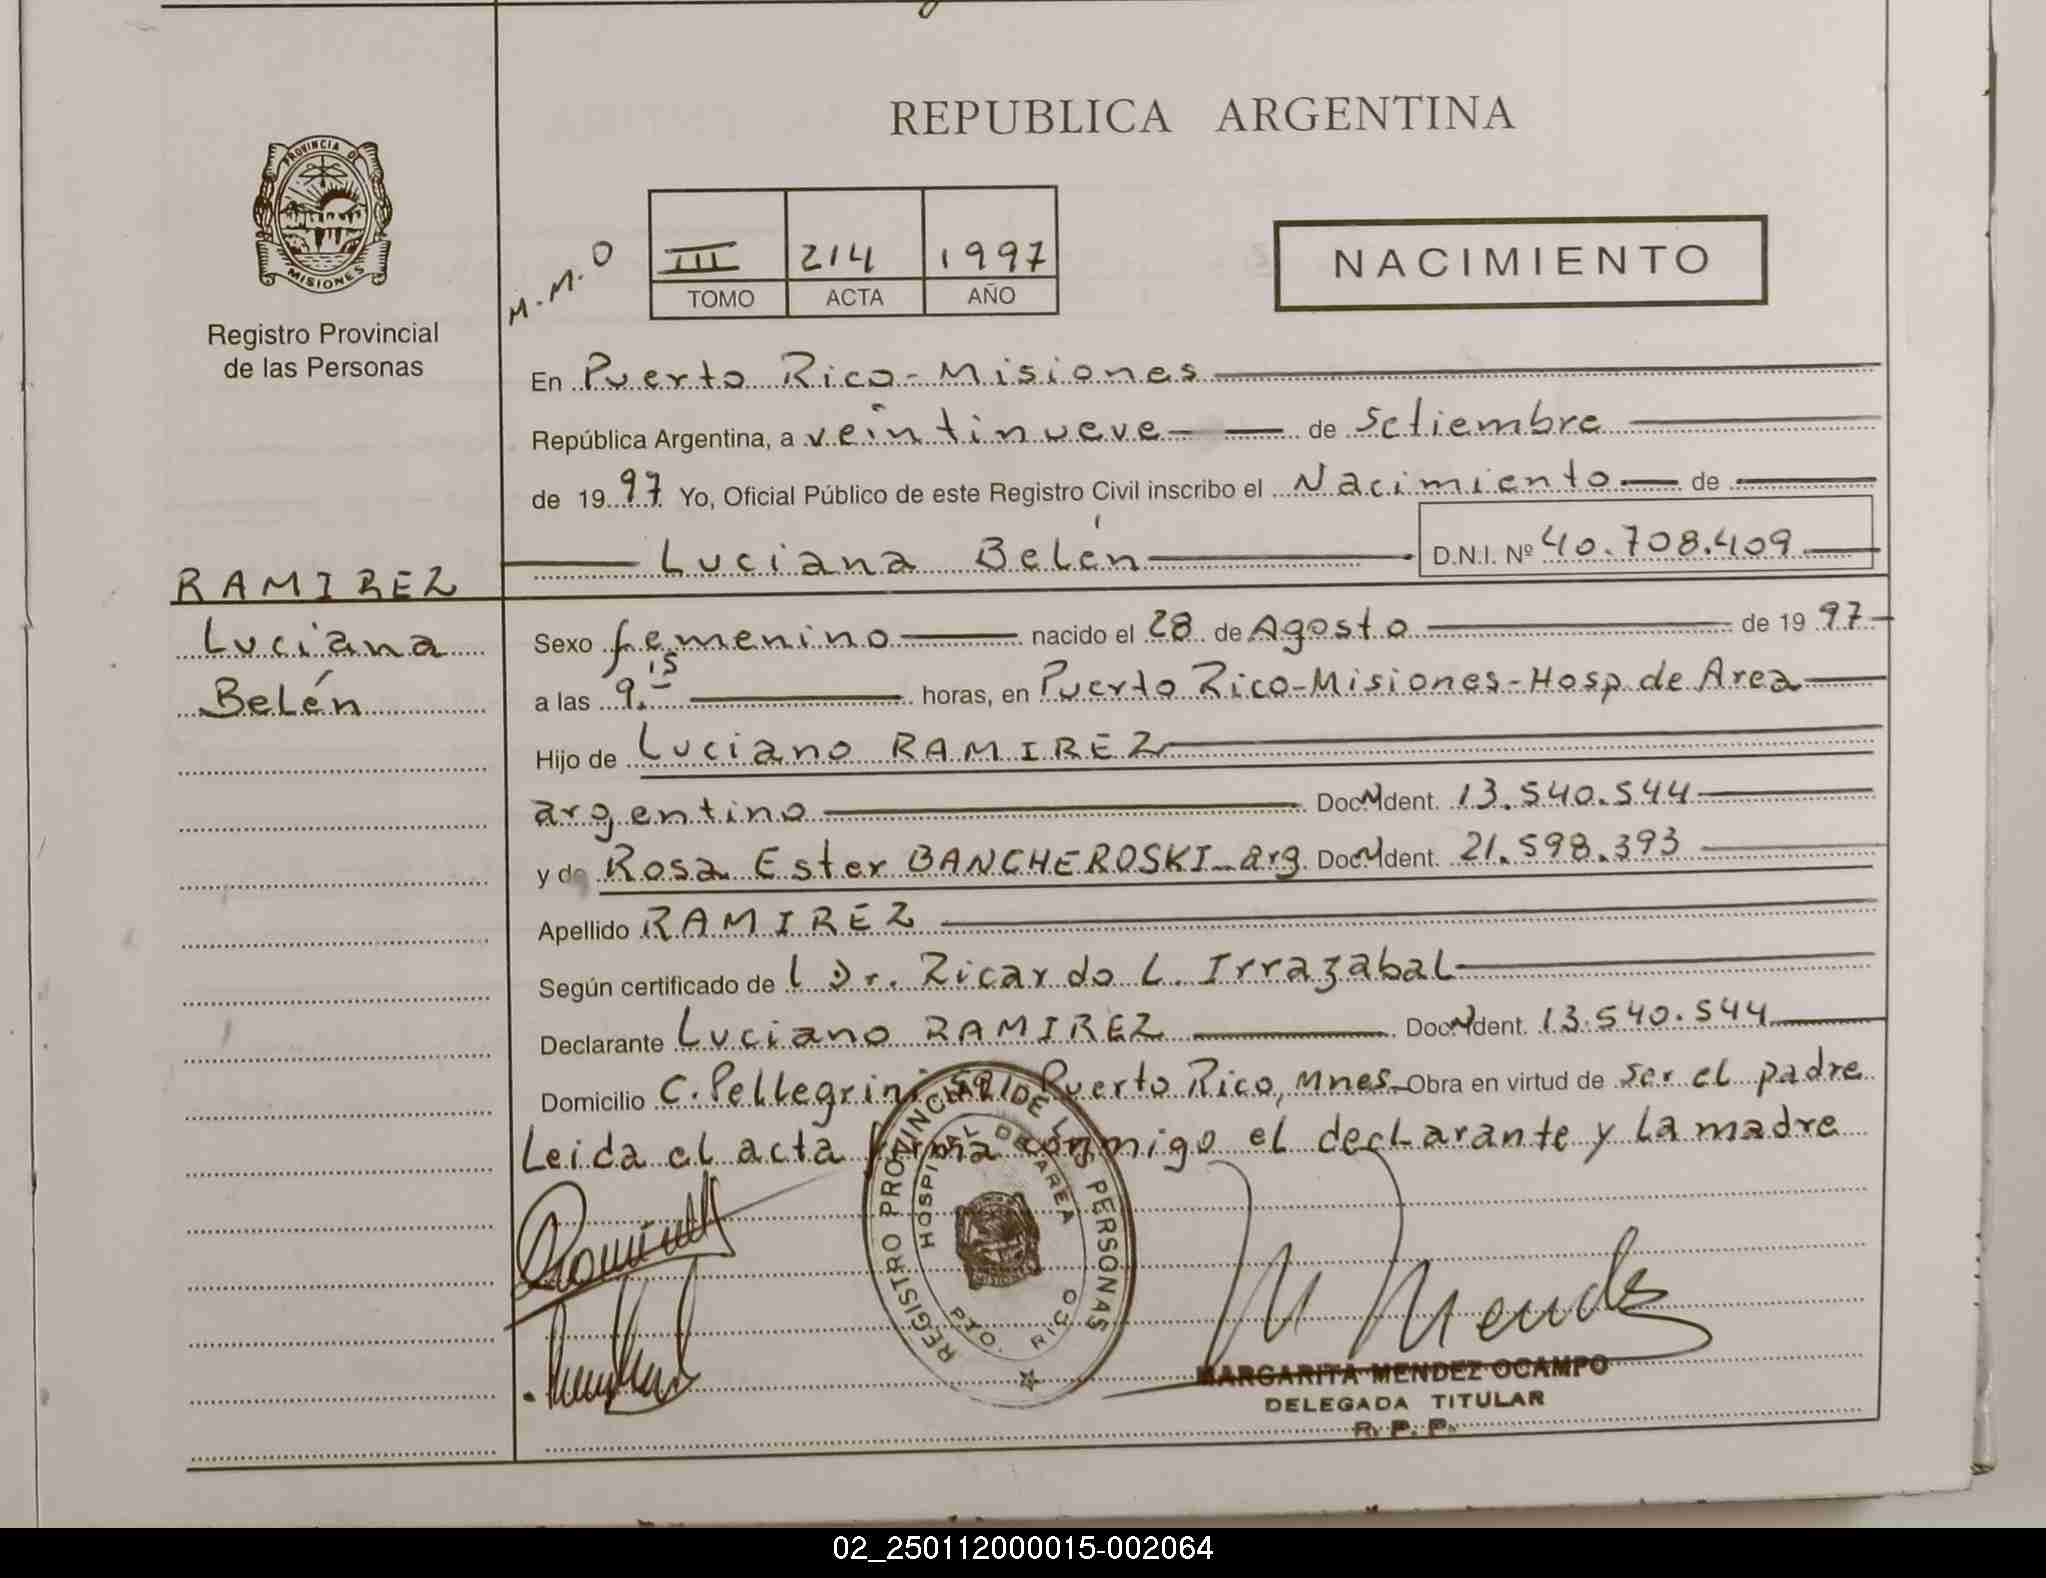 REPUBLICA ARGENTINA
PROVINCIA DE
MISIONES
Registro Provincial
de las Personas
M.M.O
III 214 1997
TOMO ACTA AÑO
NACIMIENTO
En Puerto Rico - Misiones
República Argentina, a veintinueve de Setiembre
de 1997 Yo, Oficial Público de este Registro Civil inscribo el Nacimiento de
Luciana Belén D.N.I. Nº 40.708.409
RAMIREZ
Luciana
Belén
Sexo femenino nacido el 28 de Agosto de 1997
a las 9.15 horas, en Puerto Rico-Misiones-Hosp. de Area
Hijo de Luciano RAMIREZ
argentino Doc. Ident. 13.540.544
y de Rosa Ester BANCHEROSKI - arg. Doc. Ident. 21.598.393
Apellido RAMIREZ
Según certificado de l Dr. Ricardo L. Irrazabal
Declarante Luciano RAMIREZ Doc. Ident. 13.540.544
Domicilio C. Pellegrini Puerto Rico, Mnes- Obra en virtud de ser el padre
Leida el acta firma conmigo el declarante y la madre
REGISTRO PROVINCIAL DE LAS PERSONAS
HOSPITAL DE AREA
PTO. RICO
M Mendez
MARGARITA MENDEZ OCAMPO
DELEGADA TITULAR
R. P. P.
02_250112000015-002064